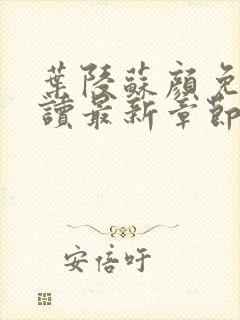 葉陵蘇顏免
讀最新章節
安倍吁